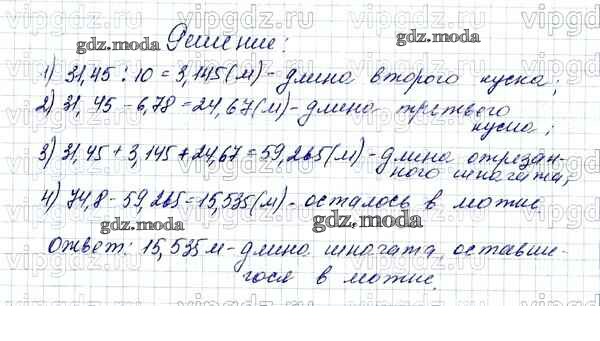 Решение:
1) 31,45 : 10 = 3,145 (м) - длина второго куска;
2) 31,45 - 6,78 = 24,67 (м) - длина третьего
куска;
3) 31,45 + 3,145 + 24,67 = 59,265 (м) - длина отрезан-
ного шпагата;
4) 74,8 - 59,265 = 15,535 (м) - осталось в мотке
Ответ: 15,535 м - длина шпагата, оставше-
гося в мотке.
vipgdz.ru
gdz.moda
gdz.moda
gdz.moda
gdz.moda
gdz.moda